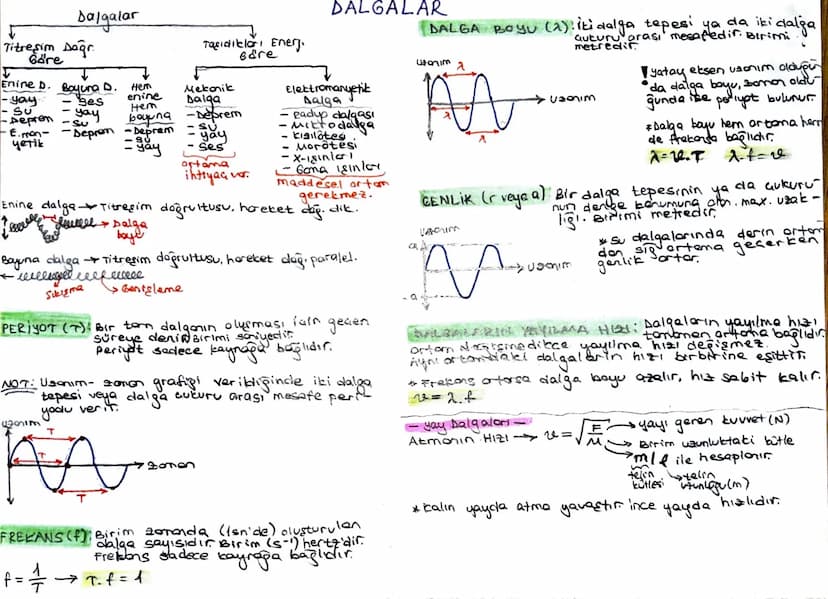 DALGALAR
Dalgalar
Titreşim Doğr. Göre
Taşıdıkları Enerj. Göre
Enine D.
- yay
- su
- Deprem
- E.man-
yetik
Boyuna D.
- ses
- yay
- su
- Deprem
Hem
enine
Hem
boyuna
- Deprem
- su
- yay
Mekanik
Dalga
- Deprem
- su
- yay
- ses
ortama
ihtiyaç var.
Elektromanyetik
Dalga
- radyo dalgası
- Mikrodalga
- kızılötesi
- Morötesi
- X-ışınları
- Gama ışınları
maddesel ortam
gerekmez.
Enine dalga → Titreşim doğrultusu, hareket doğ. dik.
Dalga
boyu
Boyuna dalga → Titreşim doğrultusu, hareket doğ. paralel.
Sıkışma
Genişleme
PERİYOT (T): Bir tam dalganın oluşması için geçen
süreye denir. Birimi saniyedir.
Periyot sadece kaynağa bağlıdır.
NOT: Uzanım- zaman grafiği verildiğinde iki dalga
tepesi veya dalga çukuru arası mesafe peri-
yodu verir.
uzanım
T
T
T
zaman
FREKANS (f): Birim zamanda (1sn'de) oluşturulan
dalga sayısıdır. Birim (s-¹) hertz'dir.
Frekans sadece kaynağa bağlıdır.
f = 1/T → T.f = 1
DALGA BOYU (λ): İki dalga tepesi ya da iki dalga
çukuru arası mesafedir. Birimi
metredir.
uzanım
λ
λ
λ
uzanım
! yatay eksen uzanım olduğun
da dalga boyu, zaman oldu
ğunda ise periyot bulunur.
* Dalga boyu hem ortama hem
de frekansa bağlıdır.
λ = v.T λ.f = v
GENLİK (r veya a) Bir dalga tepesinin ya da çukuru-
nun denge konumuna olan max. uzak-
lığı. Birimi metredir.
uzanım
a
-a
uzanım
* Su dalgalarında derin ortam
dan sığ ortama geçerken
genlik artar.
DALGALARIN YAYILMA HIZI: Dalgaların yayılma hızı
tamamen ortama bağlıdır.
ortam değişmedikçe yayılma hızı değişmez.
Aynı ortamdaki dalgaların hızı birbirine eşittir.
* Frekans artarsa dalga boyu azalır, hız sabit kalır.
v = λ.f
- yay Dalgaları -
Atmanın Hızı → v = √F/μ → yayı geren kuvvet (N)
→ Birim uzunluktaki kütle
→ m/ℓ ile hesaplanır.
telin
kütlesi
telin
uzunluğu (m)
* Kalın yayda atma yavaştır ince yayda hızlıdır.